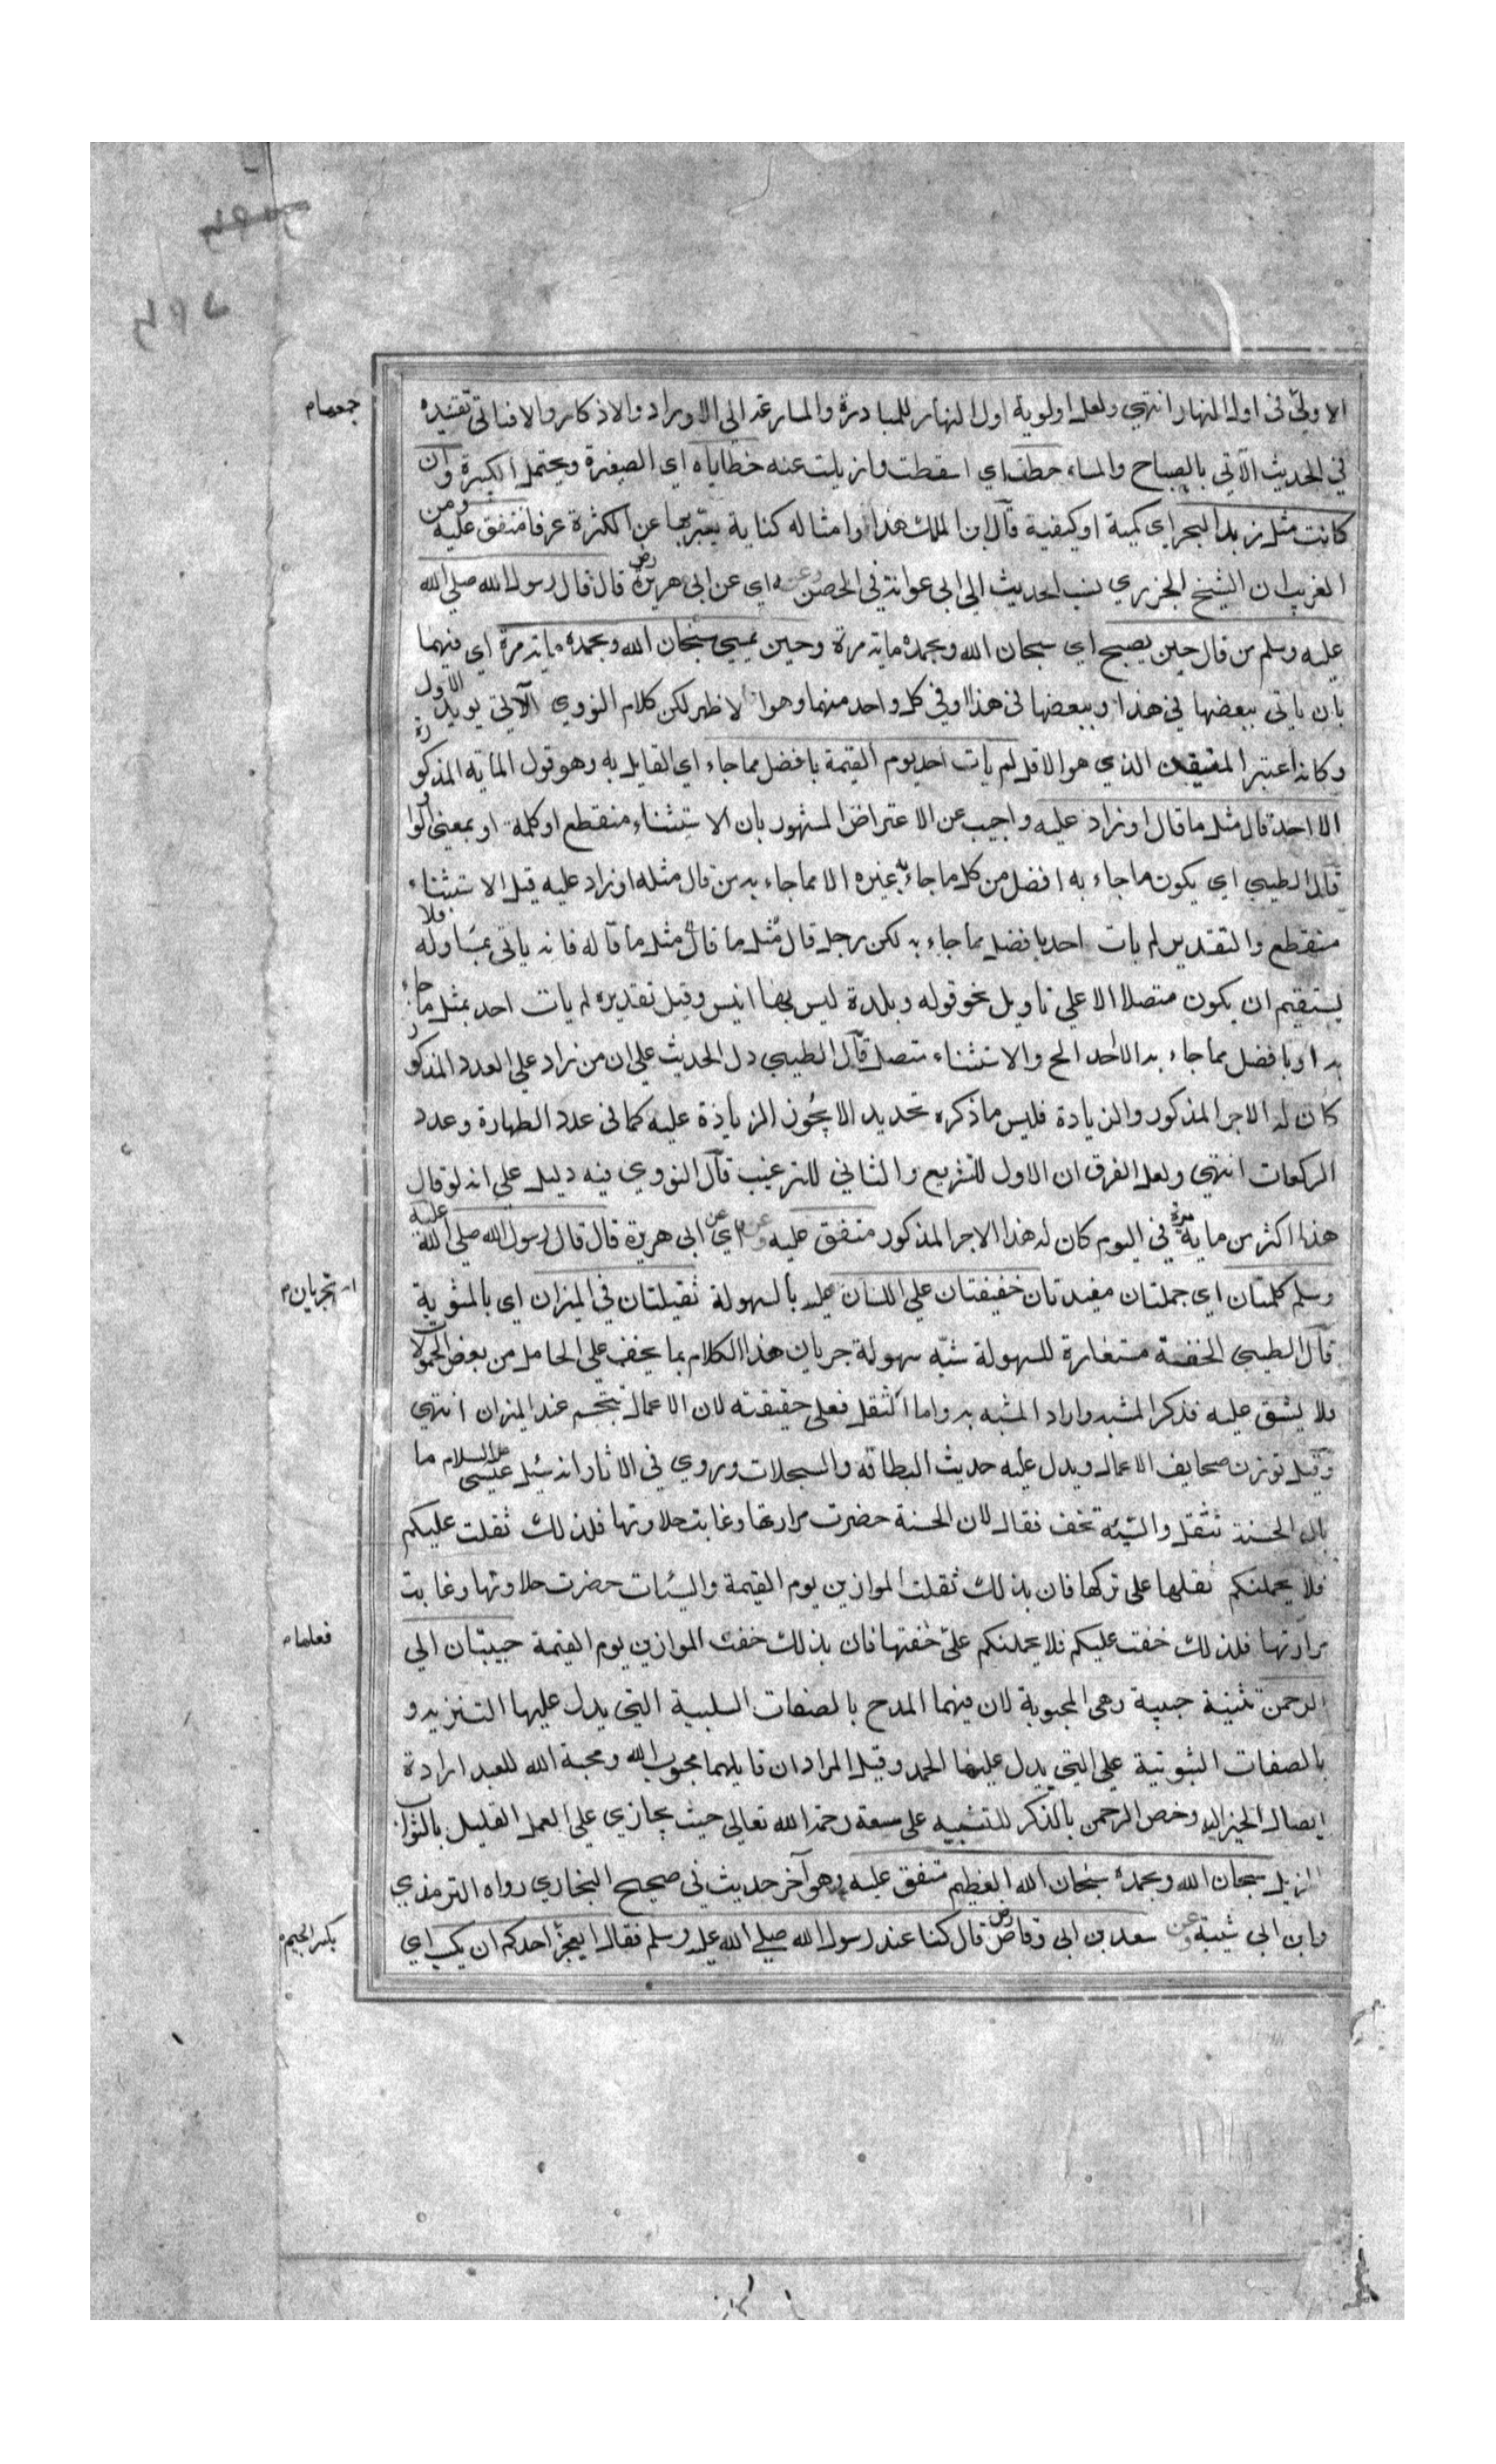 جمعهام
الاولي في اول النهار انتهي ولعل اولوية اول النهار للمبادرة والمسارعة الى الاوراد والاذكار والا فياتي تقييده
في الحديث الآتي بالصباح والمساء حطت اي اسقطت وازيلت عنه خطاياه اي الصغيرة ويحتمل الكبيرة وان
كانت مثل زبد البحر اي كمية او كيفية قال ابن الملك هذا وامثاله كناية يعبر بها عن الكثرة عرفا متفق عليه ومن
الغريب ان الشيخ الجزري نسب الحديث الي ابي عوانة في الحصن وعنه اي عن ابي هريرة رض قال قال رسول الله صلي الله
عليه وسلم من قال حين يصبح اي سبحان الله وبحمده مايه مرة وحين يمسي سبحان الله وبحمده مايه مرة اي فيهما
بان ياتي ببعضها في هذا وببعضها في هذا او في كل واحد منهما وهو الاظهر لكن كلام النووي الآتي يويد الاول
وكانه اعتبر المتيقن الذي هو الاقل لم يات احد يوم القيمة بافضل مما جاء اي القايل به وهو قول المأيه المذكورة
الا احد قال مثل ما قال او زاد عليه واجيب عن الاعتراض المشهور بان الاستثناء منقطع او كلمة او بمعني الواو
قال الطيبي اي يكون ما جاء به افضل من كل ما جاء به غيره الا مما جاء به من قال مثله او زاد عليه قيل الاستثناء
منقطع والتقدير لم يات احد بافضل مما جاء به لكن رجل قال مثل ما قال مثل ما قاله فانه ياتي بمساوله فلا
يستقيم ان يكون متصلا الا علي تاويل نحو قوله وبلدة ليس بها انيس وقيل تقديره لم يات احد بمثل ما جاء
به او بافضل مما جاء به الا احد الخ والاستثناء متصل قال الطيبي دل الحديث علي ان من زاد علي العدد المذكور
كان له الاجر المذكور والزيادة فليس ما ذكره تحديد الا يجوز الزيادة عليه كما في عدد الطهارة وعدد
الركعات انتهي ولعل الفرق ان الاول للتشريع والثاني للترغيب قال النووي فيه دليل علي انه لو قال
هذا اكثر من ماية مرة في اليوم كان له هذا الاجر المذكور متفق عليه وعنه اي عن ابي هريرة قال قال رسول الله صلي الله عليه
وسلم كلمتان اي جملتان مفيدتان خفيفتان علي اللسان بالسهولة ثقيلتان في الميزان اي بالمثوبة
تجريان
قال الطيبي الخفة مستعارة للسهولة شبه سهولة جريان هذا الكلام بما يخف علي الحامل من بعض الحمولات
فلا يشق عليه فذكر المشبه واراد المشبه به واما الثقل فعلي حقيقته لان الاعمال تتجسم عند الميزان انتهي
وقيل توزن صحايف الاعمال ويدل عليه حديث البطاقة والسجلات وروي في الاثار انه سئل عيسي عليه السلام ما
بال الحسنة تثقل والسيئة تخف فقال لان الحسنة حضرت مرارتها وغابت حلاوتها فلذلك ثقلت عليكم
فلا يحملنكم ثقلها على تركها فان بذلك ثقلت الموازين يوم القيمة والسيئات حضرت حلاوتها وغابت
مرارتها فلذلك خفت عليكم فلا يحملنكم علي خفتها فان بذلك خفت الموازين يوم القيمة حبيبتان الي
فعلهام
الرحمن تثنية حبيبة وهي المحبوبة لان فيهما المدح بالصفات السلبية التي يدل عليها التنزيه و
بالصفات الثبوتية علي التي يدل عليها الحمد وقيل المراد ان قايلهما محبوب الله ومحبة الله للعبد ارادة
ايصال الخير اليه وخص الرحمن بالذكر للتنبيه علي سعة رحمة الله تعالي حيث يجازي علي العمل القليل بالثواب
الجزيل سبحان الله وبحمده سبحان الله العظيم متفق عليه وهو آخر حديث في صحيح البخاري رواه الترمذي
وابن ابي شيبة وعن سعد بن ابي وقاص رض قال كنا عند رسول الله صلي الله عليه وسلم فقال ايعجز احدكم ان يكسب اي
بكسر الجيم